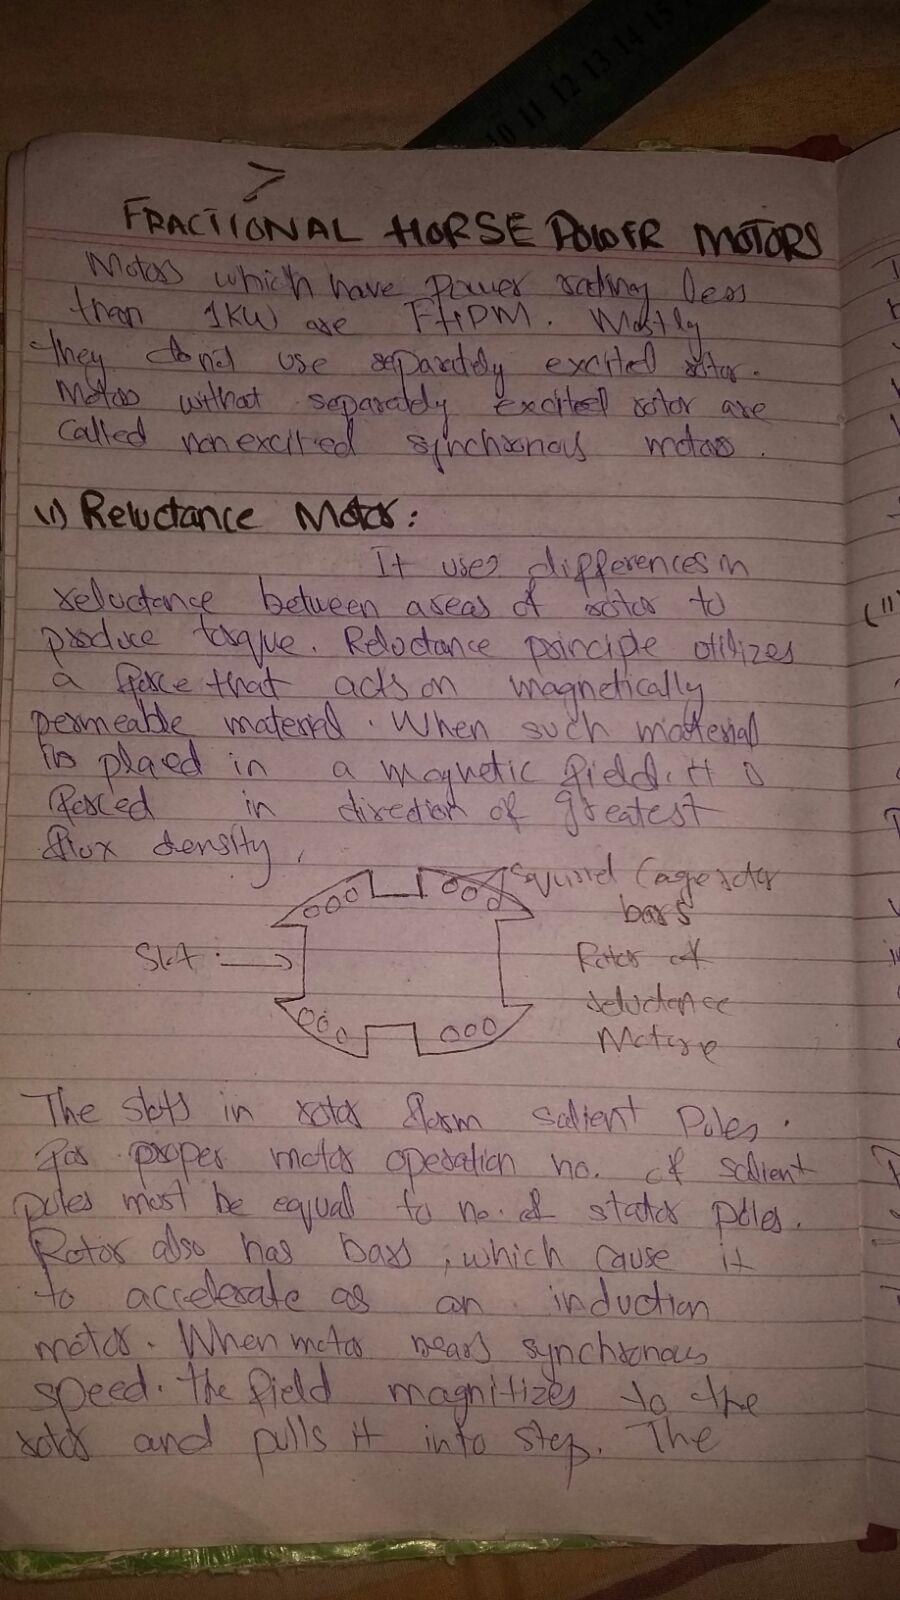 10 11 12 13 14 15
FRACTIONAL HORSE POWER MOTORS
Motors which have power rating less
than 1KW are FHPM. Mostly
they donot use separately excited rotor.
Motors without separately excited rotor are
called nonexcited synchronous motors.
(i) Reluctance Motor:
It uses differences in
reluctance between areas of rotor to
produce torque. Reluctance principle utilizes
a force that acts on magnetically
permeable material. When such material
is placed in a magnetic field. it is
forced in direction of greatest
flux density.
Squirrel Cage rotor
bars
Slot
Rotor of
reluctance
Motore
The slots in rotor form salient Poles.
for proper motor operation no. of salient
poles must be equal to no. of stator poles.
Rotor also has bars, which cause it
to accelerate as an induction
motor. When motor nears synchronous
speed. the field magnitizes to the
rotor and pulls it into step. The
(ii)